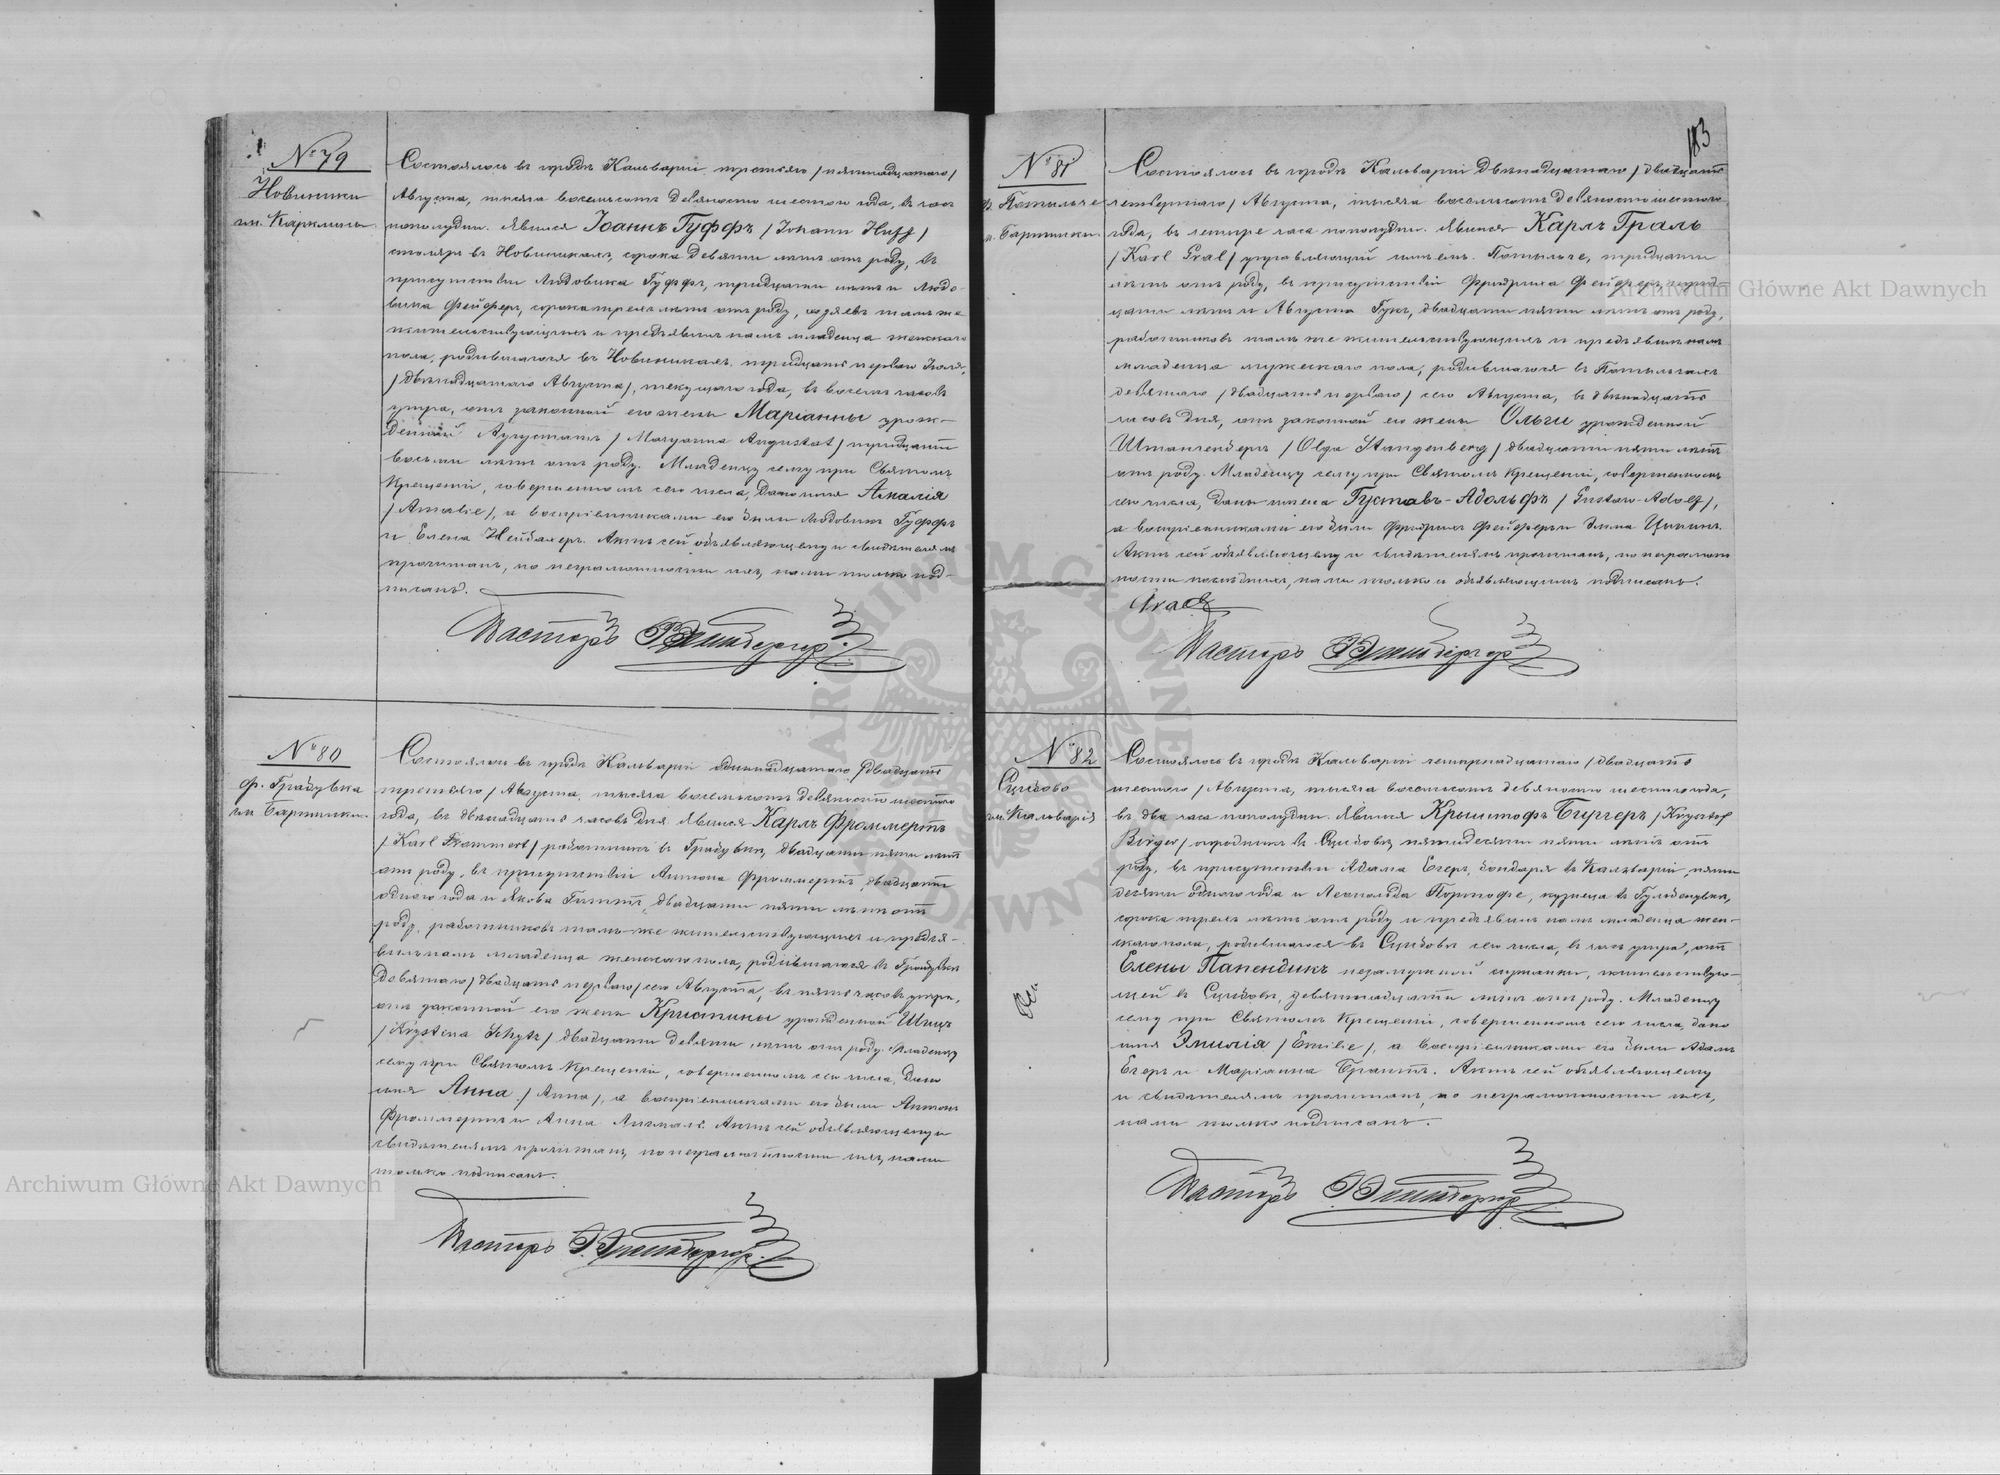 № 79
Новиники
гм. Кирклины
Состоялось въ городѣ Кальваріи третьяго /пятнадцатаго/
Августа, тысяча восемьсотъ девяносто шестого года, въ часъ
пополудни. Явился Іоаннъ Гуффъ /Johann Huff/
столяръ въ Новиникахъ, сорока девяти лѣтъ отъ роду, въ
присутствіи Людовика Гуффъ, тридцати лѣтъ и Людо-
вика Фейферъ, сорока трехъ лѣтъ отъ роду, тамъ же
жительствующихъ и предъявилъ намъ младенца женскаго
пола, родившагося въ Новиникахъ, тридцать перваго Іюля,
/двѣнадцатаго Августа/, текущаго года, въ восемь часовъ
утра, отъ законной его жены Маріанны урож-
денной Аугустатъ /Maryanna Augustat/ тридцати
восьми лѣтъ отъ роду. Младенцу сему при Святомъ
Крещеніи, совершенномъ сего числа, дано имя Амалія
/Amalie/, а воспріемниками его были Людовикъ Гуффъ
и Елена Нейбахеръ. Актъ сей объявляющему и свидѣтелямъ
прочитанъ, по неграмотности ихъ, нами только под-
писанъ.
Пасторъ
№ 80
ф. Грабувка
гм. Бартники
Состоялось въ городѣ Кальваріи одиннадцатаго /двадцать
третьяго/ Августа, тысяча восемьсотъ девяносто шестого
года, въ двѣнадцать часовъ дня. Явился Карлъ Фроммертъ
/Karl Frommert/ работникъ въ Грабувкѣ, двадцати пяти лѣтъ
отъ роду, въ присутствіи Антона Фроммертъ, двадцати
одного года и Якова Гиттъ, двадцати пяти лѣтъ отъ
роду, работниковъ тамъ-же жительствующихъ и предъя-
вилъ намъ младенца женскаго пола, родившагося въ Грабувкѣ
девятаго /двадцать перваго/ сего Августа, въ пять часовъ утра,
отъ законной его жены Кристины урожденной Шицъ
/Krystina Schytz/ двадцати девяти лѣтъ отъ роду. Младенцу
сему при Святомъ Крещеніи, совершенномъ сего числа, дано
имя Анна /Anna/, а воспріемниками его были Антонъ
Фроммертъ и Анна Актъ сей объявляющему и
свидѣтелямъ прочитанъ, по неграмотности ихъ, нами
только подписанъ.
Пасторъ
183
№ 81
ф. Потыльче
гм. Бартники
Состоялось въ городѣ Кальваріи двѣнадцатаго /двадцать
четвертаго/ Августа, тысяча восемьсотъ девяносто шестого
года, въ четыре часа пополудни. Явился Карлъ Граль
/Karl Gral/ управляющій имѣн. Потыльче, тридцати
лѣтъ отъ роду, въ присутствіи Фридриха Фейферъ, трид-
цати лѣтъ и Августа Гукъ, двадцати пяти лѣтъ отъ роду,
работниковъ тамъ же жительствующихъ и предъявилъ намъ
младенца мужескаго пола, родившагося въ Потыльчахъ
девятаго /двадцать перваго/ сего Августа, въ двѣнадцать
часовъ дня, отъ законной его жены Ольги урожденной
Штангенбергъ /Olga Stangenberg/ двадцати пяти лѣтъ
отъ роду. Младенцу сему при Святомъ Крещеніи, совершенномъ
сего числа, даны имена Густавъ-Адольфъ /Gustaw-Adolf/,
а воспріемниками его были Фридрихъ Фейферъ и Эмма
Актъ сей объявляющему и свидѣтелямъ прочитанъ, по неграмот-
ности послѣднихъ, нами только и объявляющимъ подписанъ.
Пасторъ
№ 82
гм. Кальварія
Состоялось въ городѣ Кальваріи четырнадцатаго /двадцать
шестого/ Августа, тысяча восемьсотъ девяносто шестого года,
въ два часа пополудни. Явился Крыштофъ Биргеръ /Krysztof
Birger/ огородникъ въ пятидесяти пяти лѣтъ отъ
роду, въ присутствіи Адама Егеръ, бондаря въ Кальваріи, пяти-
десяти одного года и Леопольда кузнеца въ
сорока трехъ лѣтъ отъ роду и предъявилъ намъ младенца жен-
скаго пола, родившагося въ сего числа, въ часъ утра, отъ
Елены Папендикъ незамужной служанки, жительствую-
щей въ девятнадцати лѣтъ отъ роду. Младенцу
сему при Святомъ Крещеніи, совершенномъ сего числа, дано
имя Эмилія /Emilie/, а воспріемниками его были Адамъ
Егеръ и Маріанна Брантъ. Актъ сей объявляющему
и свидѣтелямъ прочитанъ, по неграмотности ихъ,
нами только подписанъ.
Пасторъ
Archiwum Główne Akt Dawnych
Archiwum Główne Akt Dawnych